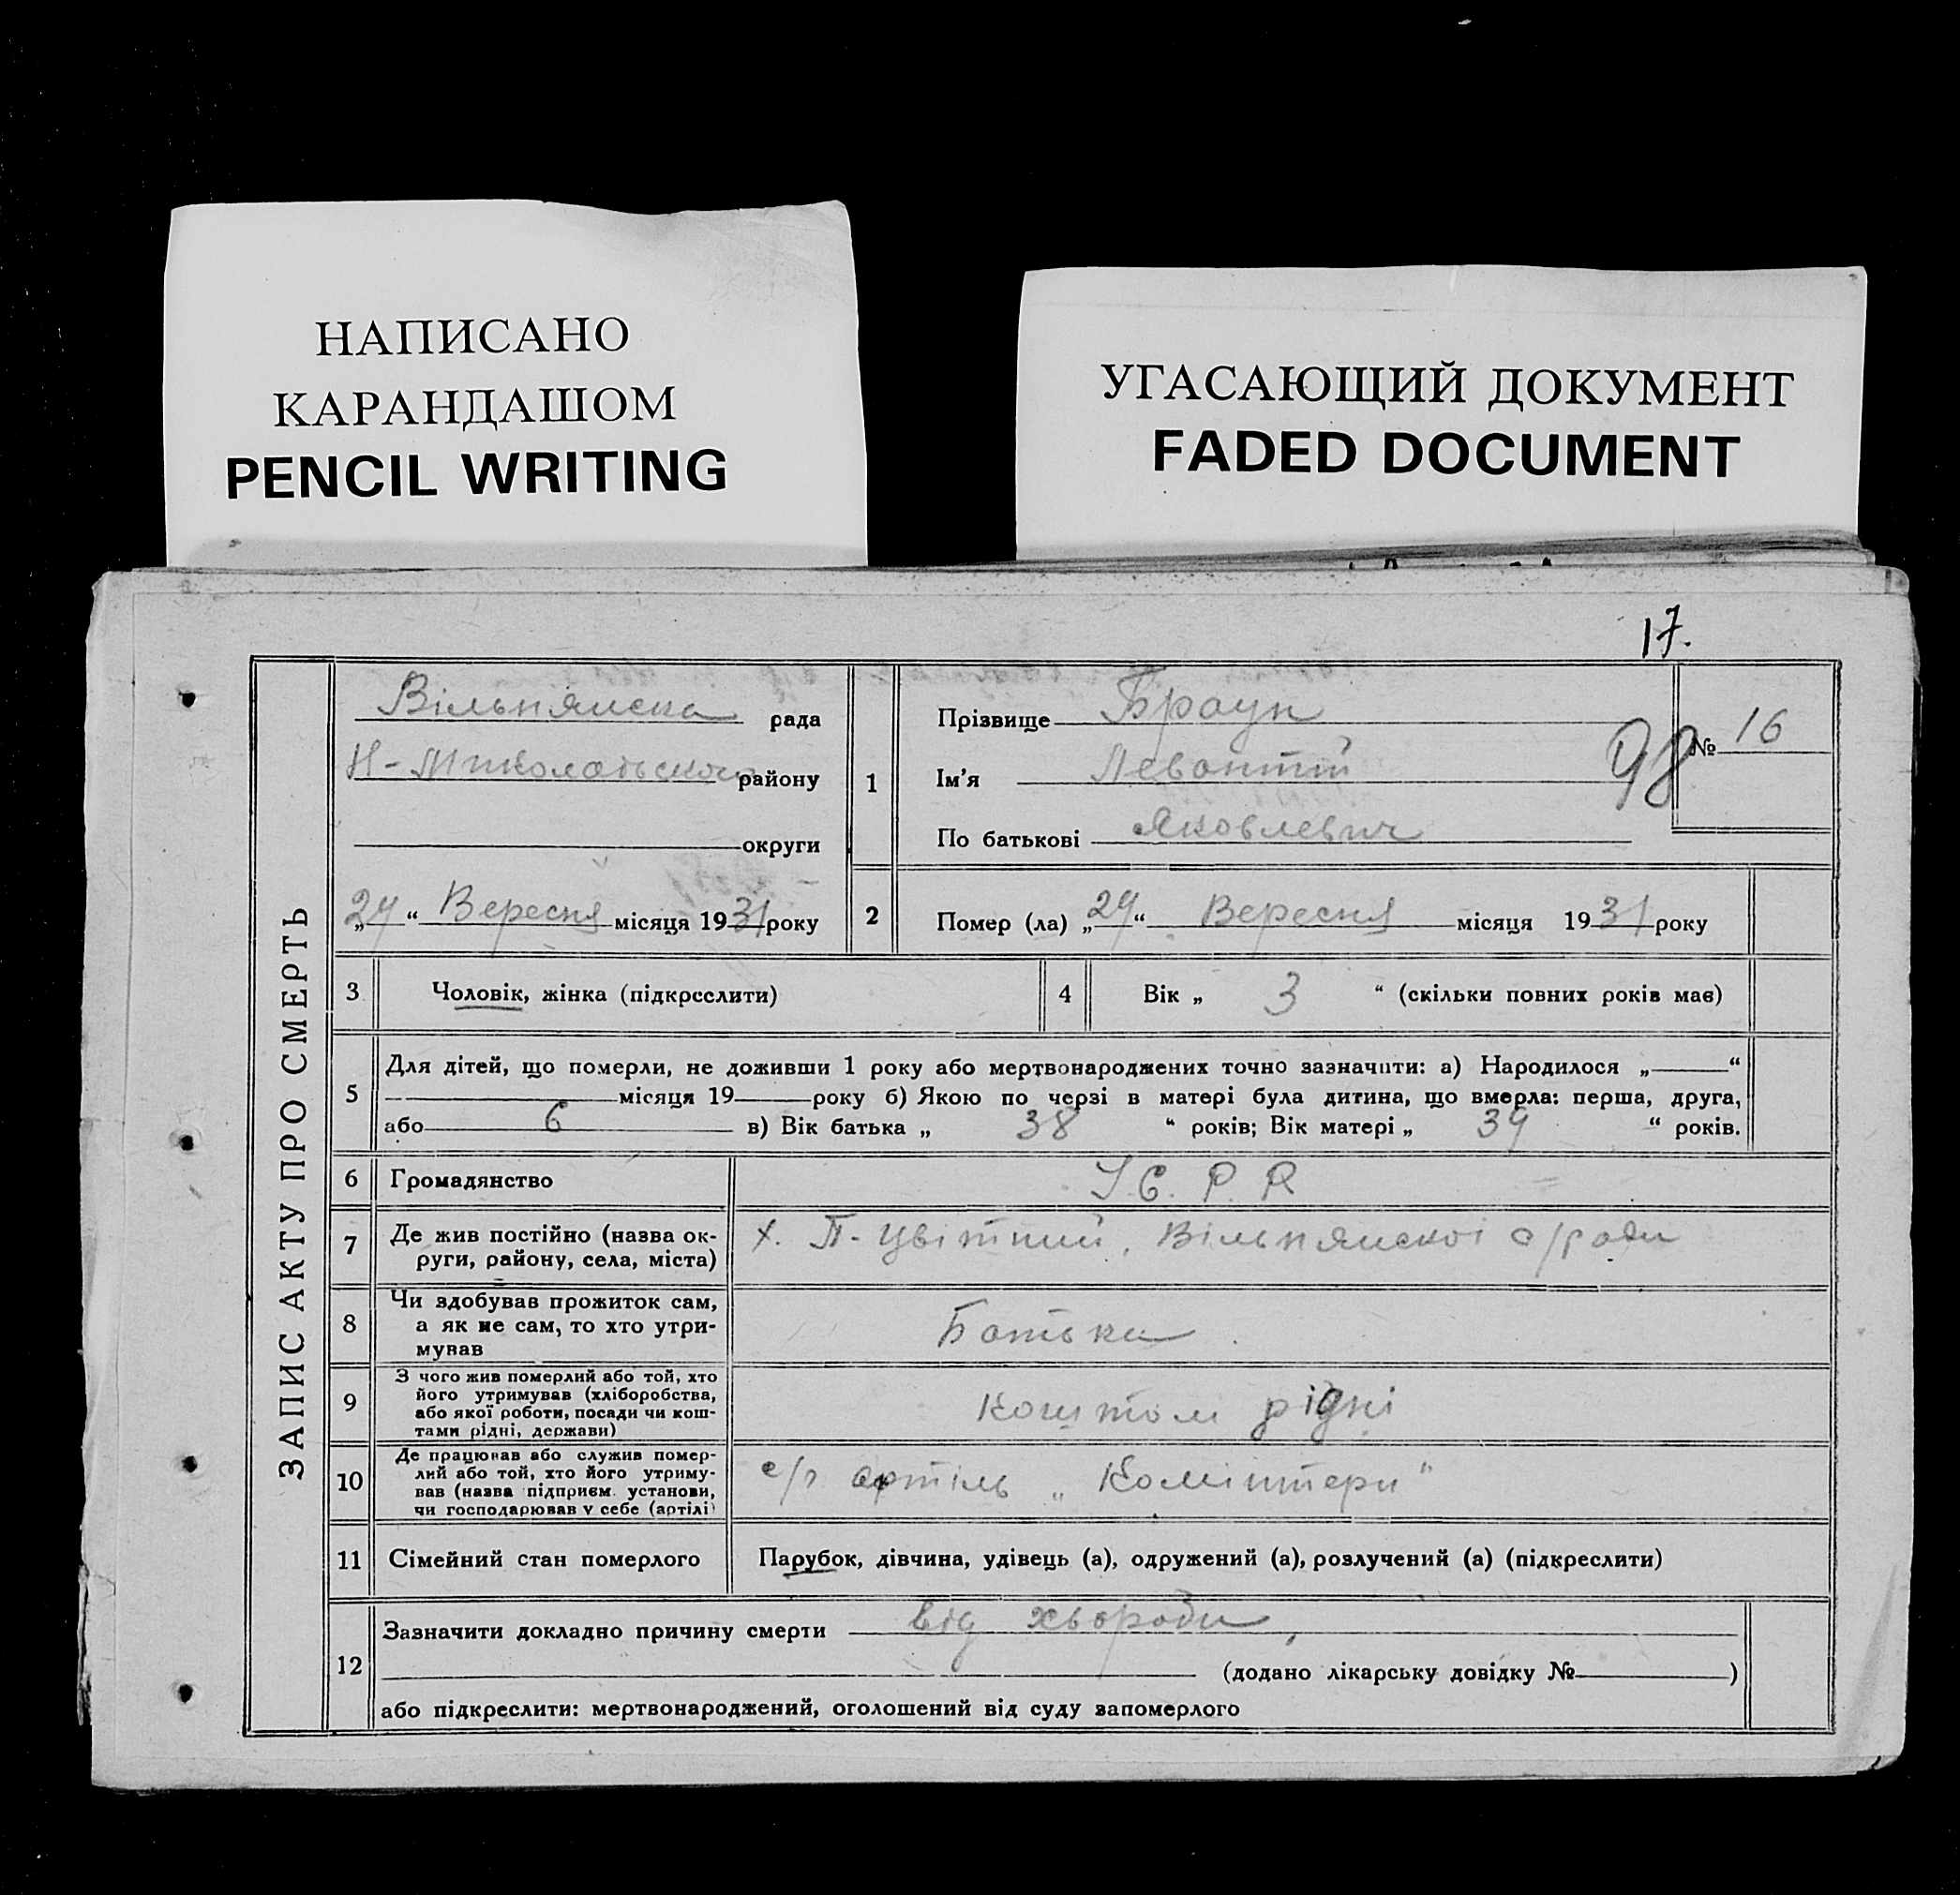 НАПИСАНО
КАРАНДАШОМ
PENCIL WRITING
УГАСАЮЩИЙ ДОКУМЕНТ
FADED DOCUMENT
17.
ЗАПИС АКТУ ПРО СМЕРТЬ
Вільнянська рада
Н-Миколаївського району
округи
„ “ Вересня місяця 1931 року
1
Прізвище Браун
Ім’я Левонтій
По батькові Яковлевич
98
№ 16
2
Помер (ла) „ “ Вересня місяця 1931 року
3
Чоловік, жінка (підкреслити)
4
Вік „ 3 “ (скільки повних років має)
5
Для дітей, що померли, не доживши 1 року або мертвонароджених точно зазначити: а) Народилося „ “
місяця 19 року б) Якою по черзі в матері була дитина, що вмерла: перша, друга,
або 6 в) Вік батька „ 38 “ років; Вік матері „ “ років.
6
Громадянство
У.С.Р.Р.
7
Де жив постійно (назва ок-
руги, району, села, міста)
х. П-Цвітний, Вільнянської с/ради
8
Чи здобував прожиток сам,
а як не сам, то хто утри-
мував
Батьки
9
З чого жив померлий або той, хто
його утримував (хліборобства,
або якої роботи, посади чи кош-
тами рідні, держави)
Коштом рідні
10
Де працював або служив помер-
лий або той, хто його утриму-
вав (назва підприєм. установи,
чи господарював у себе (артілі)
с/г артіль „Комінтерн“
11
Сімейний стан померлого
Парубок, дівчина, удівець (а), одружений (а), розлучений (а) (підкреслити)
12
Зазначити докладно причину смерти від хвороби,
(додано лікарську довідку № )
або підкреслити: мертвонароджений, оголошений від суду запомерлого